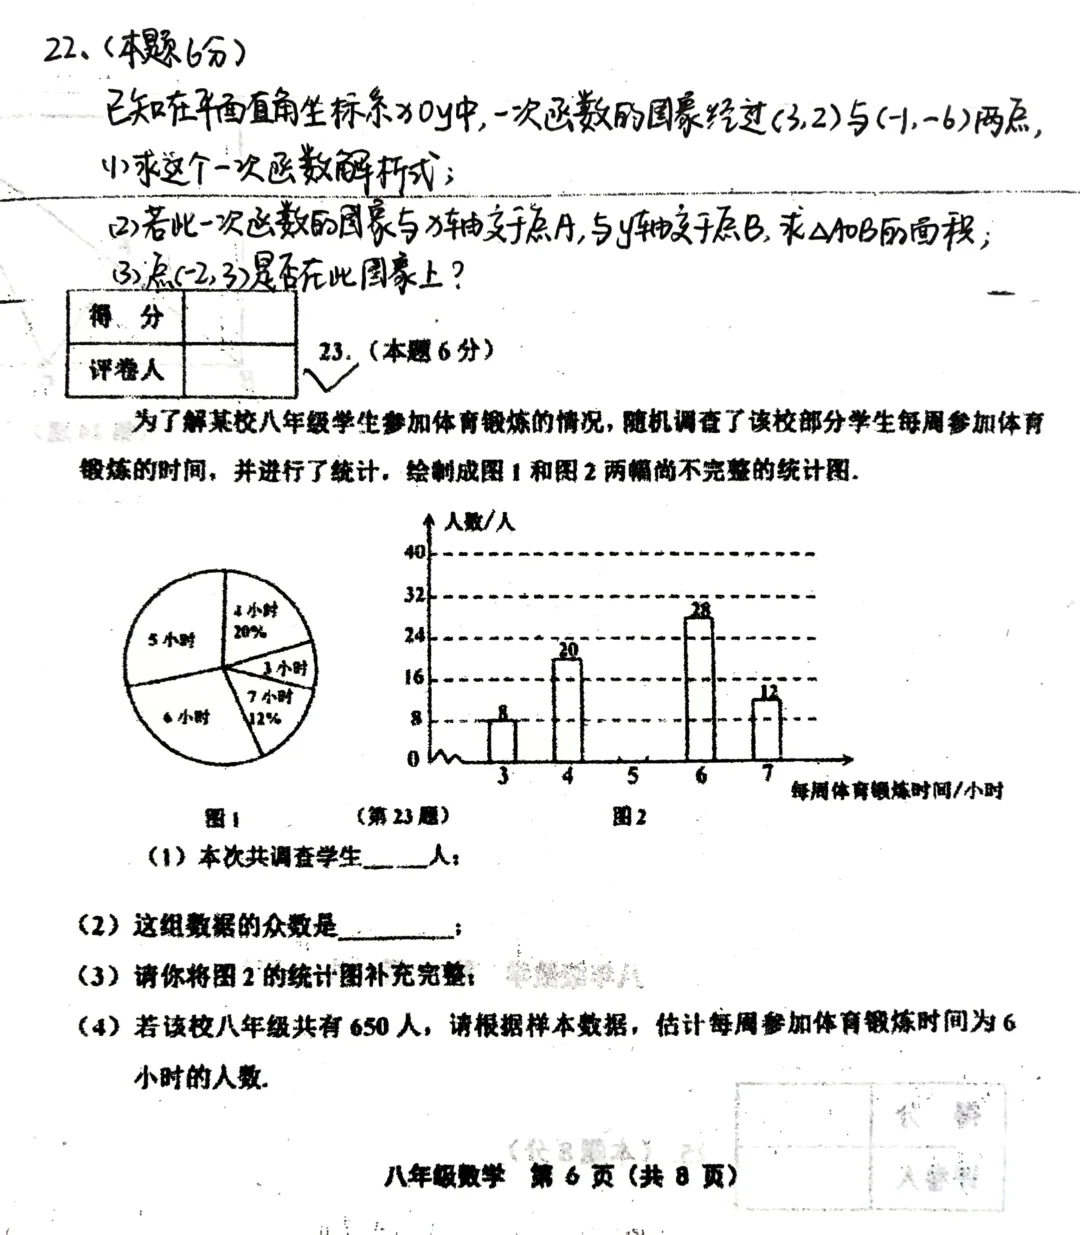 22、(本题6分)
已知在平面直角坐标系xOy中,一次函数的图象经过(3,2)与(-1,-6)两点,
(1)求这个一次函数解析式;
(2)若此一次函数的图象与x轴交于点A,与y轴交于点B,求△AOB的面积;
(3)点(-2,3)是否在此图象上?
得 分
评卷人
23.(本题6分)
为了解某校八年级学生参加体育锻炼的情况,随机调查了该校部分学生每周参加体育
锻炼的时间,并进行了统计。绘制成图1和图2两幅尚不完整的统计图.
人数/人
40
32
24
16
8
0
8
20
28
12
3 4 5 6 7
每周体育锻炼时间/小时
4小时
20%
5小时
3小时
7小时
12%
6小时
图1 (第23题) 图2
(1)本次共调查学生______人;
(2)这组数据的众数是_________;
(3)请你将图2的统计图补充完整;
(4)若该校八年级共有650人,请根据样本数据,估计每周参加体育锻炼时间为6
小时的人数.
八年级数学 第6页(共8页)